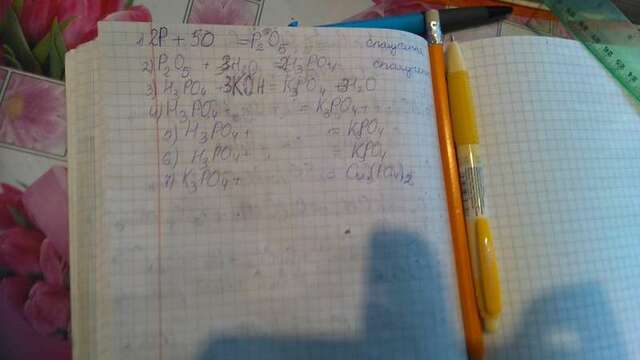 1) 2P + 5O = P2O5
2) P2O5 + 3H2O = 2H3PO4
3) H3PO4 + 3KOH = K3PO4 + 3H2O
4) H3PO4 + = K3PO4 +
5) H3PO4 + = KPO4
6) H3PO4 + = KPO4
7) K3PO4 + = Cu3(PO4)2